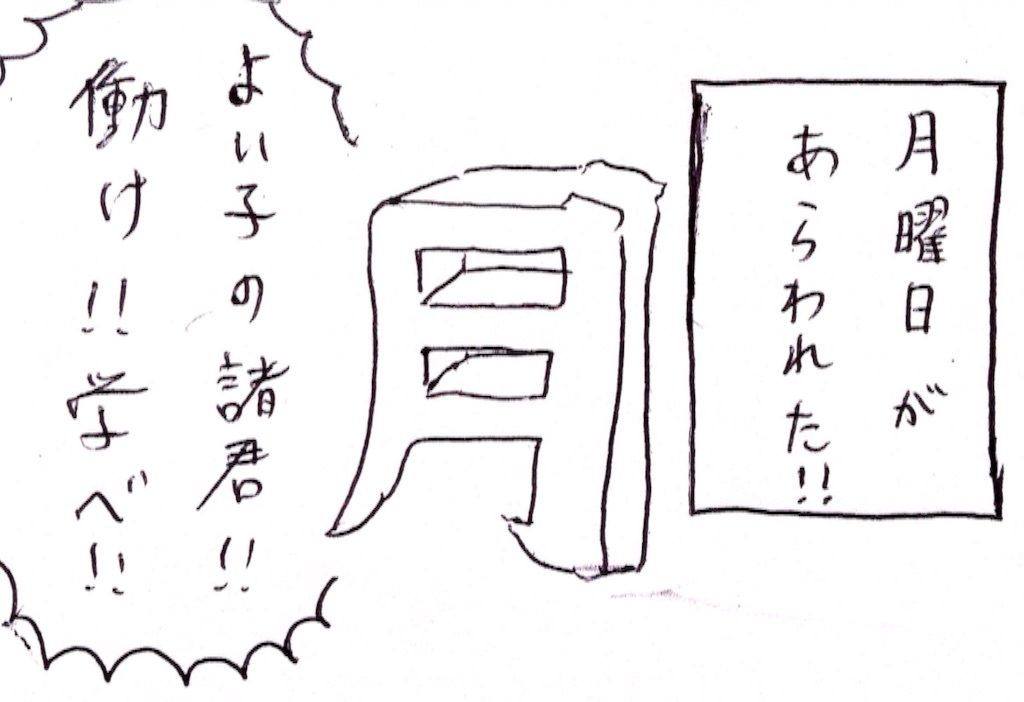 月曜日が
あらわれた!!
月
よい子の諸君!!
働け!!学べ!!